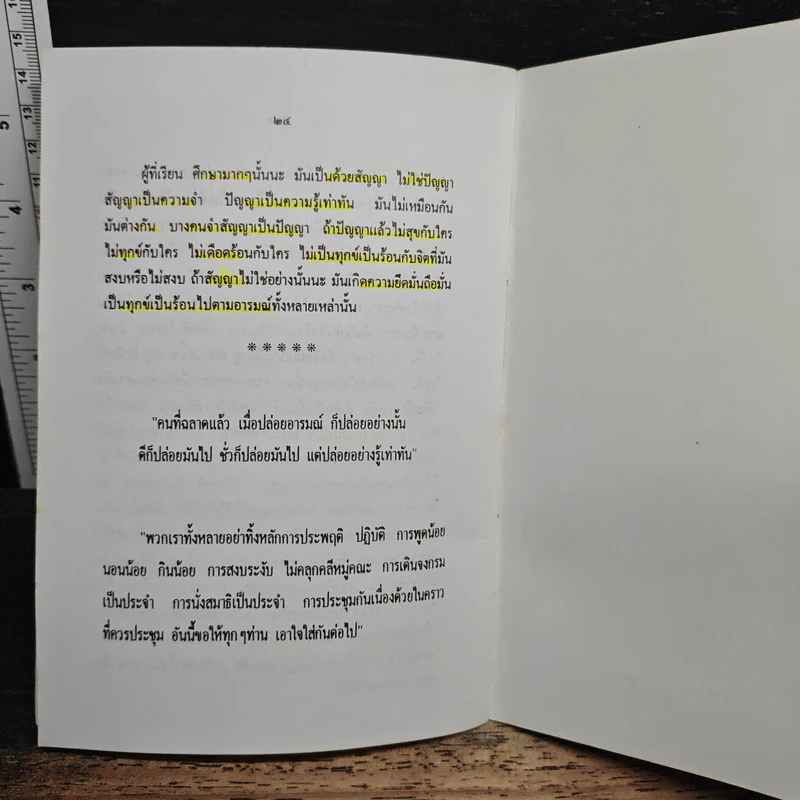 ๒๔
ผู้ที่เรียน ศึกษามากๆนั้นนะ มันเป็นด้วยสัญญา ไม่ใช่ปัญญา
สัญญาเป็นความจำ ปัญญาเป็นความรู้เท่าทัน มันไม่เหมือนกัน
มันต่างกัน บางคนจำสัญญาเป็นปัญญา ถ้าปัญญาแล้วไม่สุขกับใคร
ไม่ทุกข์กับใคร ไม่เดือดร้อนกับใคร ไม่เป็นทุกข์เป็นร้อนกับจิตที่มัน
สงบหรือไม่สงบ ถ้าสัญญาไม่ใช่อย่างนั้นนะ มันเกิดความยึดมั่นถือมั่น
เป็นทุกข์เป็นร้อนไปตามอารมณ์ทั้งหลายเหล่านั้น
*****
"คนที่ฉลาดแล้ว เมื่อปล่อยอารมณ์ ก็ปล่อยอย่างนั้น
ดีก็ปล่อยมันไป ชั่วก็ปล่อยมันไป แต่ปล่อยอย่างรู้เท่าทัน"
"พวกเราทั้งหลายอย่าทิ้งหลักการประพฤติ ปฏิบัติ การพูดน้อย
นอนน้อย กินน้อย การสงบระงับ ไม่คลุกคลีหมู่คณะ การเดินจงกรม
เป็นประจำ การนั่งสมาธิเป็นประจำ การประชุมกันเนื่องด้วยในคราว
ที่ควรประชุม อันนี้ขอให้ทุกๆท่าน เอาใจใส่กันต่อไป"
5
4
3
15
14
13
12
11
10
9
8